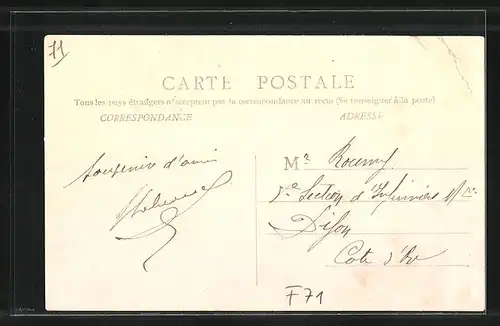 71
CARTE POSTALE
Tous les pays étrangers n'acceptent pas la correspondance au recto (Se renseigner à la poste)
CORRESPONDANCE
ADRESSE
Souvenir d'ami
Mr
Section d'Infirmiers Mres
Dijon
Cote d'Or
F71